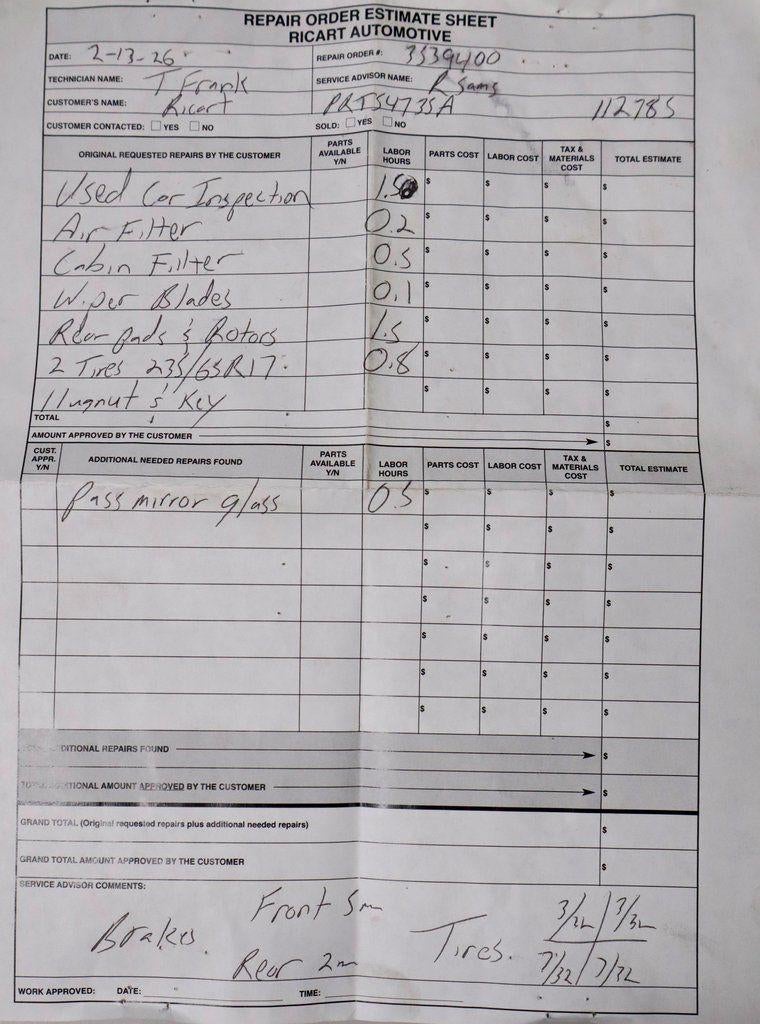 REPAIR ORDER ESTIMATE SHEET
RICART AUTOMOTIVE
DATE: 2-13-26 REPAIR ORDER #: 3539400
TECHNICIAN NAME: T Frank SERVICE ADVISOR NAME: R Sams
CUSTOMER'S NAME: Ricart PRTS4735A 112785
CUSTOMER CONTACTED: YES NO SOLD: YES NO
ORIGINAL REQUESTED REPAIRS BY THE CUSTOMER PARTS AVAILABLE Y/N LABOR HOURS PARTS COST LABOR COST TAX & MATERIALS COST TOTAL ESTIMATE
Used Car Inspection 1.5 $ $ $ $
Air Filter 0.2 $ $ $ $
Cabin Filter 0.5 $ $ $ $
Wiper Blades 0.1 $ $ $ $
Rear pads & Rotors 1.5 $ $ $ $
2 Tires 235/65R17 0.8 $ $ $ $
1 lugnut & Key $ $ $ $
TOTAL $
AMOUNT APPROVED BY THE CUSTOMER $
CUST. APPR. Y/N ADDITIONAL NEEDED REPAIRS FOUND PARTS AVAILABLE Y/N LABOR HOURS PARTS COST LABOR COST TAX & MATERIALS COST TOTAL ESTIMATE
Pass mirror glass 0.5 $ $ $ $
$ $ $ $
$ $ $ $
$ $ $ $
$ $ $ $
$ $ $ $
$ $ $ $
DITIONAL REPAIRS FOUND $
TIONAL AMOUNT APPROVED BY THE CUSTOMER $
GRAND TOTAL (Original requested repairs plus additional needed repairs) $
GRAND TOTAL AMOUNT APPROVED BY THE CUSTOMER $
SERVICE ADVISOR COMMENTS:
Brakes Front 5m Tires. 3/32 3/32
Rear 2m 7/32 7/32
WORK APPROVED: DATE: TIME: